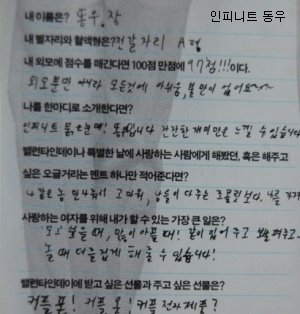 인피니트 동우
내 이름은? 동우, 장
내 별자리와 혈액형은? 전갈자리 A형
내 외모에 점수를 매긴다면? 100점 만점에 97점!!!이다.
외모뿐만 아니라 모든것에 아쉬움, 불만이 없어요~~
나를 한마디로 소개한다면?
인피니트 동우입니다 건강한 재미만 느낄 수 있습니다
밸런타인데이나 특별한 날에 사랑하는 사람에게 해봤던, 혹은 해주고
싶은 오글거리는 멘트 하나만 적어준다면?
나같은 놈 만나줘서 고마워, 남들이 다주는 초콜릿보다, 나를
사랑하는 여자를 위해 내가 할 수 있는 가장 큰 일은?
보고 싶을 때, 많이 아플 때! 같이 있어 주고
놀 때 더 즐겁게 해줄 수 있습니다!
밸런타인데이에 받고 싶은 선물과 주고 싶은 선물은?
커플폰! 커플옷! 커플전자제품?